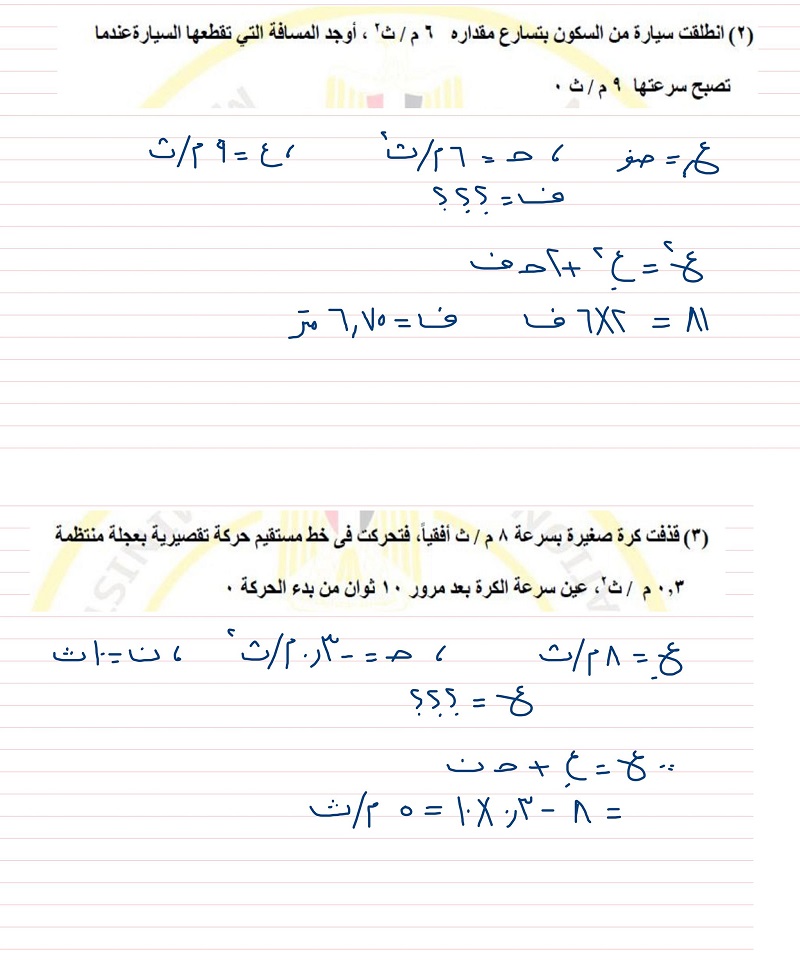 (٢) انطلقت سيارة من السكون بتسارع مقداره ٦ م / ث٢ ، أوجد المسافة التي تقطعها السيارة عندما
تصبح سرعتها ٩ م / ث ٠
ع. = صفر ، حـ = ٦ م/ث٢ ، ع = ٩ م/ث
ف = ؟؟؟
ع٢ = ع.٢ + ٢ حـ ف
٨١ = ٢×٦ ف ف = ٦,٧٥ متر
(٣) قذفت كرة صغيرة بسرعة ٨ م / ث أفقياً، فتحركت فى خط مستقيم حركة تقصيرية بعجلة منتظمة
٠,٣ م / ث٢، عين سرعة الكرة بعد مرور ١٠ ثوان من بدء الحركة ٠
ع. = ٨ م/ث ، حـ = -٠,٣ م/ث٢ ، ن = ١٠ ث
ع = ؟؟؟
∵ ع = ع. + حـ ن
= ٨ - ٠,٣ × ١٠ = ٥ م/ث